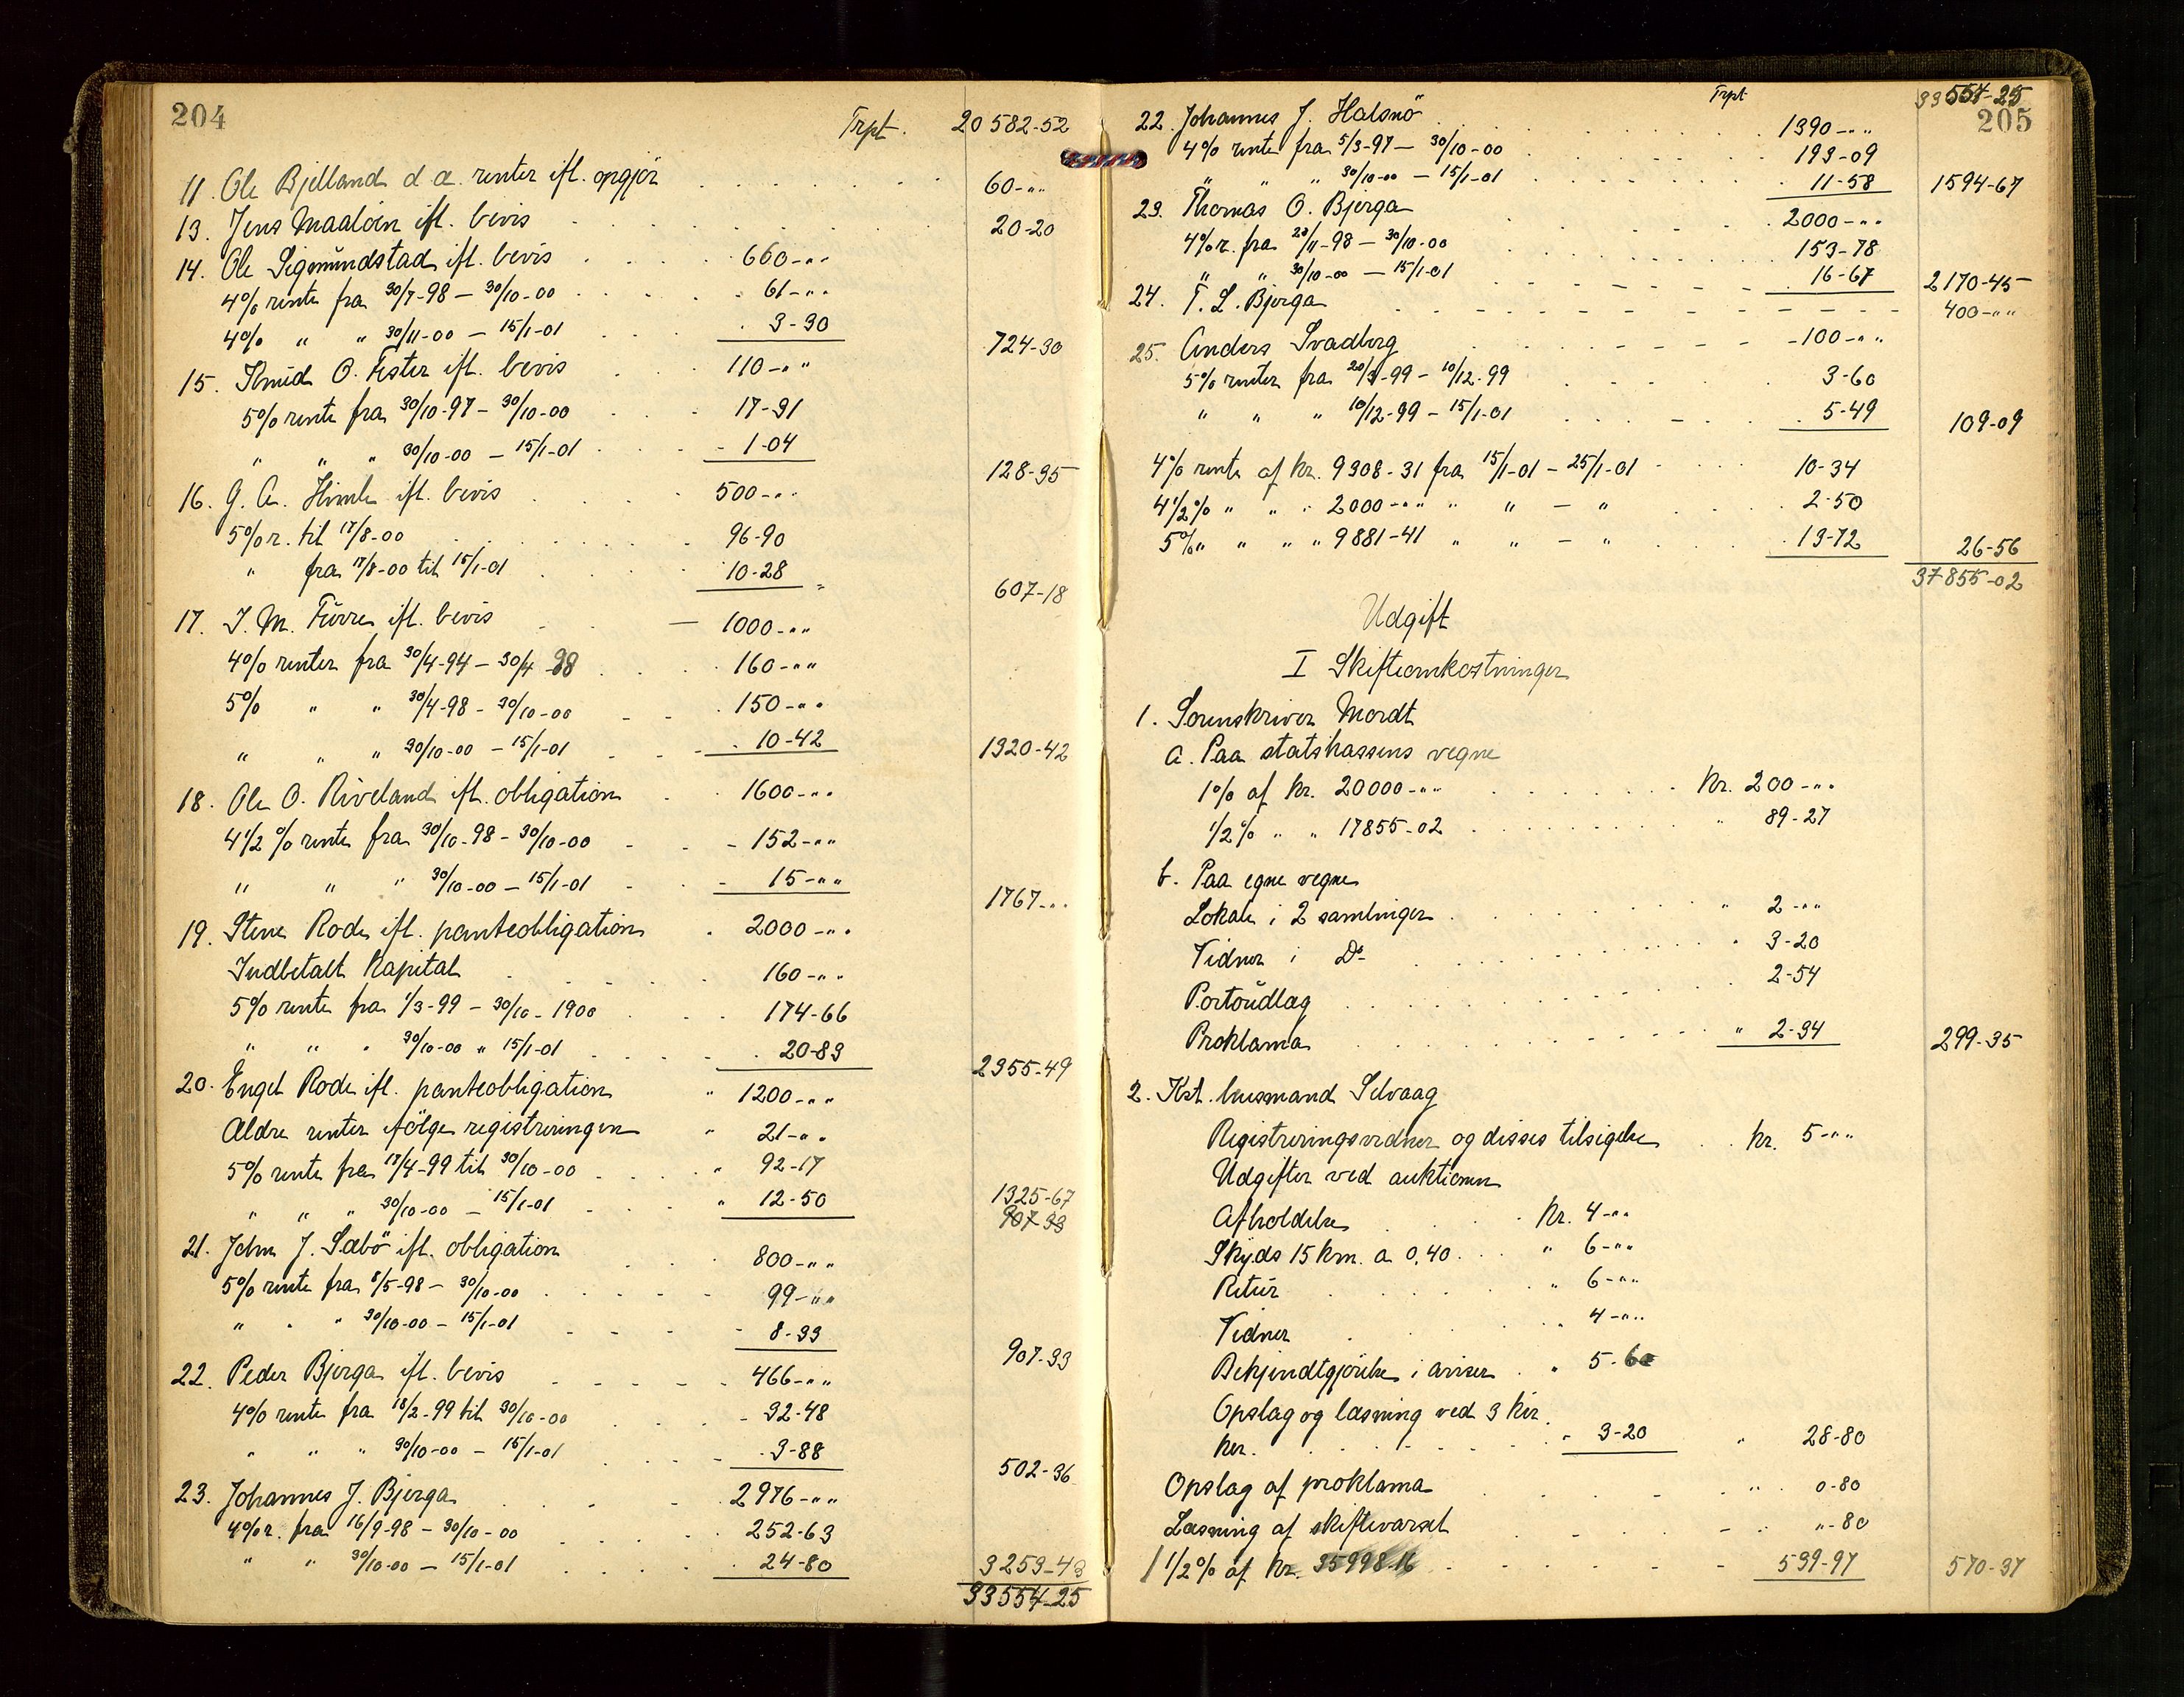 204
Trpt. 20582-52
11. Ole Bjelland d a. renter ifl. opgjör 60-"
13. Jens Maalöen ifl. bevis 20-20
14. Ole Sigmundstad ifl. bevis 660-"
4% rente fra 30/7-98 – 30/10-00 61-"
4% " " 30/11-00 – 15/1-01 3-30 724-30
15. Knud O. Fister ifl. bevis 110-"
5% rente fra 30/10-97 – 30/10-00 17-91
" " " 30/10-00 – 15/1-01 1-04 128-95
16. G. A. Himle ifl. bevis 500-"
5% r. til 17/8-00 96-90
" fra 17/8-00 til 15/1-01 10-28 607-18
17. I. M. Furre ifl. bevis 1000-"
4% renter fra 30/4-94 – 30/4-98 160-"
5% " " 30/4-98 – 30/10-00 150-"
" " " 30/10-00 – 15/1-01 10-42 1320-42
18. Ole O. Riveland ifl. obligation 1600-"
4 1/2 % rente fra 30/10-98 – 30/10-00 152-"
" " " 30/10-00 – 15/1-01 15-" 1767-"
19. Stene Rode ifl. panteobligation 2000-"
Indbetalt kapital 160-"
5% rente fra 1/3-99 – 30/10-1900 174-66
" " " 30/10-00 " 15/1-01 20-83 2355-49
20. Engel Rode ifl. panteobligation " 1200-"
Ældre renter ifölge registreringen " 21-"
5% rente fra 17/4-99 til 30/10-00 " 92-17
" " " 30/10-00 – 15/1-01 " 12-50 1325-67
907 33
21. John J. Sæbö ifl. obligation 800-"
5% rente fra 8/5-98 – 30/10-00 99-"
" " " 30/10-00 – 15/1-01 8-33 907-33
22. Peder Bjerga ifl. bevis 466-"
4% rente fra 18/2-99 til 30/10-00 32-48
" " " 30/10-00 – 15/1-01 3-88 502-36
23. Johannes J. Bjerga 2976-"
4% r. fra 16/9-98 – 30/10-00 252-63
" " 30/10-00 – 15/1-01 24-80 3253-43
33554-25
Trpt 33554-25
205
22. Johannes J. Halsnö 1390-"
4% rente fra 5/3-97 – 30/10-00 193-09
" " " 30/10-00 – 15/1-01 11-58 1594-67
23. Thomas O. Bjerga 2000-"
4% r. fra 28/11-98 – 30/10-00 153-78
" " 30/10-00 – 15/1-01 16-67 2170-45
24. T. L. Bjerga 400-"
25. Anders Svadberg 100-"
5% renter fra 20/3-99 – 10/12-99 3-60
" " " 10/12-99 – 15/1-01 5-49 109-09
4% rente af kr. 9308-31 fra 15/1-01 – 25/1-01 10-34
4 1/2 % " " " 2000-" " " – " 2-50
5% " " " " 9881-41 " " – " 13-72 26-56
37855-02
Udgift
I Skifteomkostninger
1. Sorenskriver Mordt
a. Paa statskassens vegne
1% af kr. 20000-" kr. 200-"
1/2 % " " 17855-02 " 89-27
b. Paa egne vegne
Lokale i 2 samlinger " 2-"
Vidner i Do " 3-20
Portoudlæg 2-54
Proklama " 2-34 299-35
2. Kst. lensmand Selvaag
Registreringsvidner og disses tilsigelse kr. 5-"
Udgifter ved auktionen
Afholdelse kr. 4-"
Skyds 15 km. a 0,40 " 6-"
Retur " 6-"
Vidner " 4-"
Bekjendtgjörelse i aviser " 5-60
Opslag og læsning ved 3 kir
ker. " 3-20 " 28-80
Opslag af proklama " 0-80
Læsning af skiftevarsel " "-80
1 1/2 % af kr. 35998-16 539-97 570-37